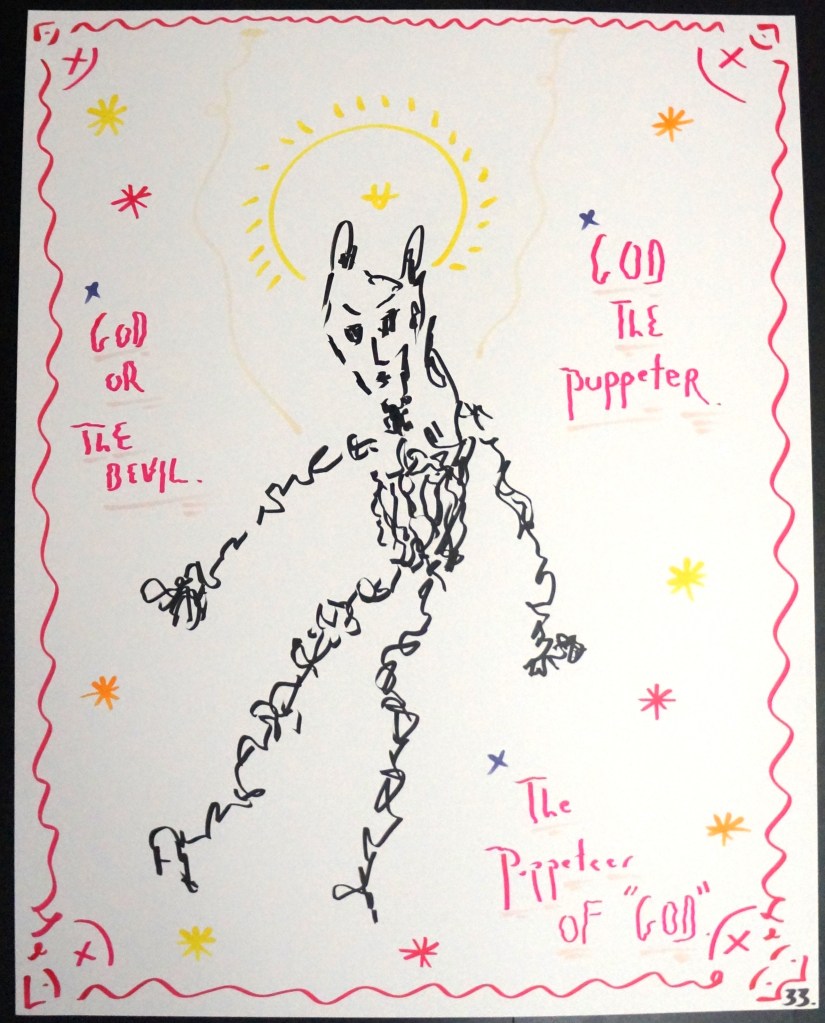 GOD
OR
THE
DEVIL.
GOD
THE
puppeTER.
The
Puppeteer
OF "GOD".
33.